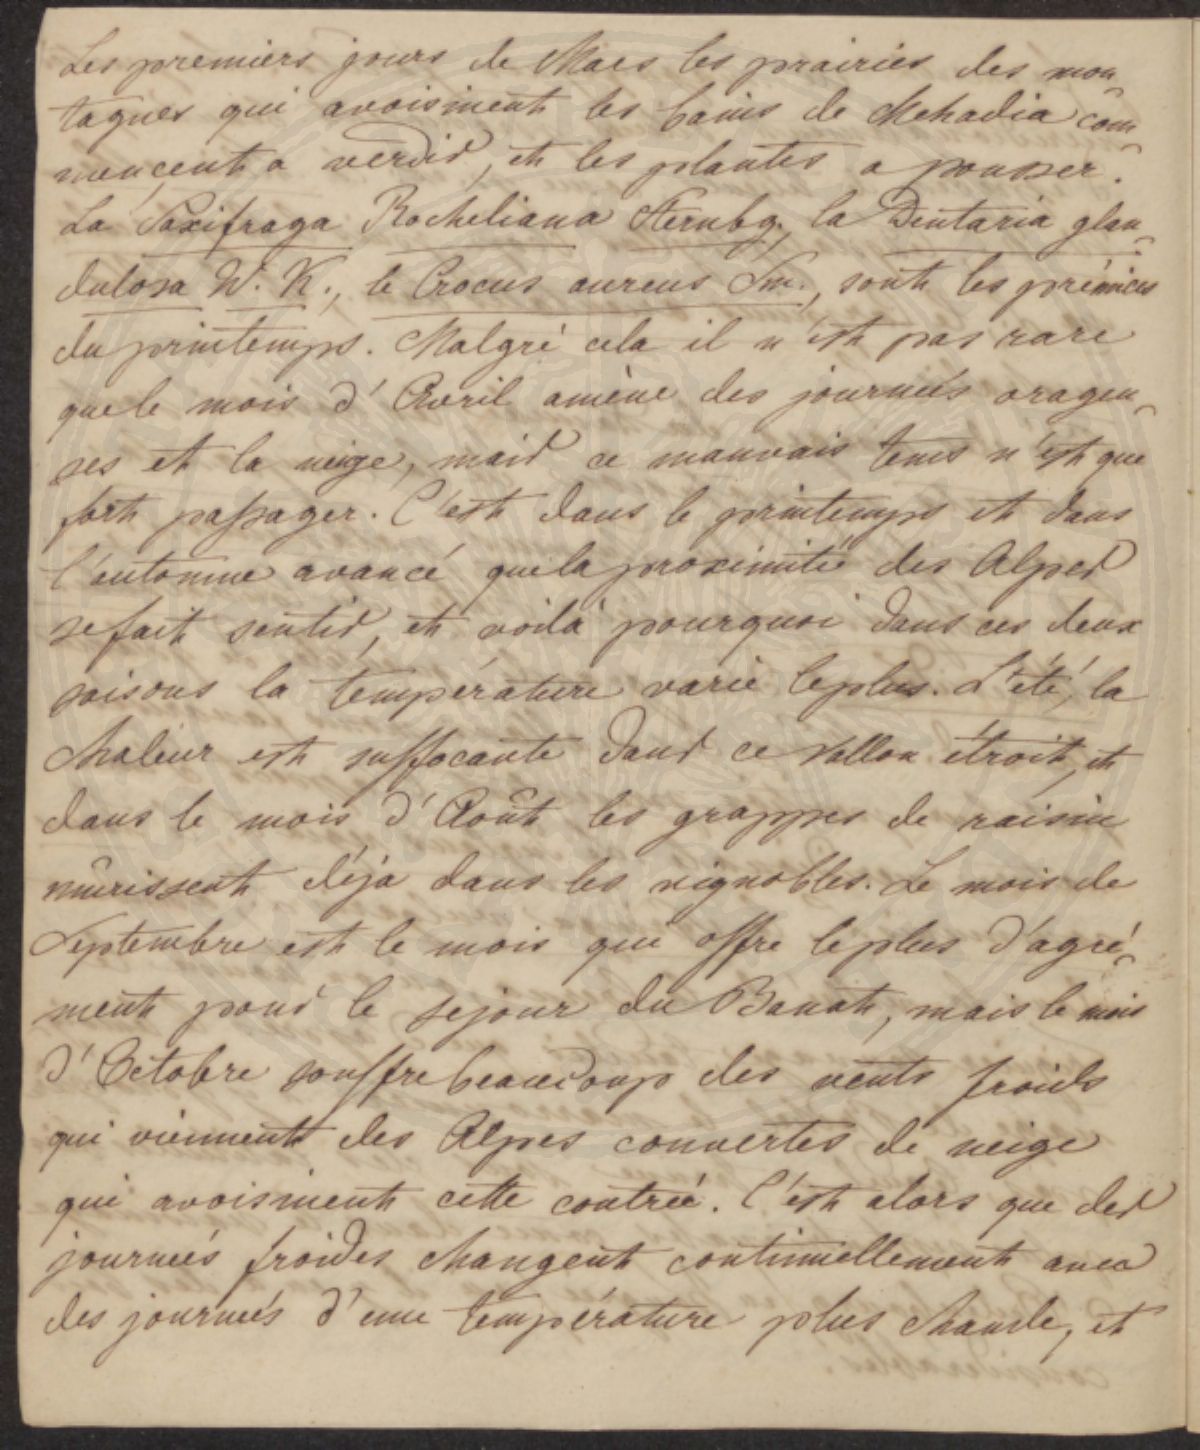 Les premiers jours de Mars les prairies des mon
tagnes qui avoisinent les bains de Mehadia com
mencent a verdir, et les plantes a pousser.
La Saxifraga Rocheliana Sternbg., la Dentaria glan
dulosa W. K., le Crocus aureus Sm., sont les prémices
du printemps. Malgré cela il n'est pas rare
que le mois d'Avril amène des journeés orageu
ses et la neige, mais ce mauvais tems n'est que
fort passager. C'est dans le printemps et dans
l'automne avancé que la proximitié des Alpes
se fait sentir, et voilà pourquoi dans ces deux
saisons la température varie le plus. L'été, la
chaleur est suffocante dans ce vallon étroit, et
dans le mois d'Août les grappes de raisin
mûrissent déja dans les vignobles. Le mois de
Septembre est le mois qui offre le plus d'agré
ment pour le sejour du Banat, mais le mois
d'Octobre souffre beaucoup des vents froids
qui viennent des Alpes couvertes de neige
qui avoisinent cette contreé. C'est alors que des
journeés froides changent continuellement avec
des journeés d'une température plus chaude, et